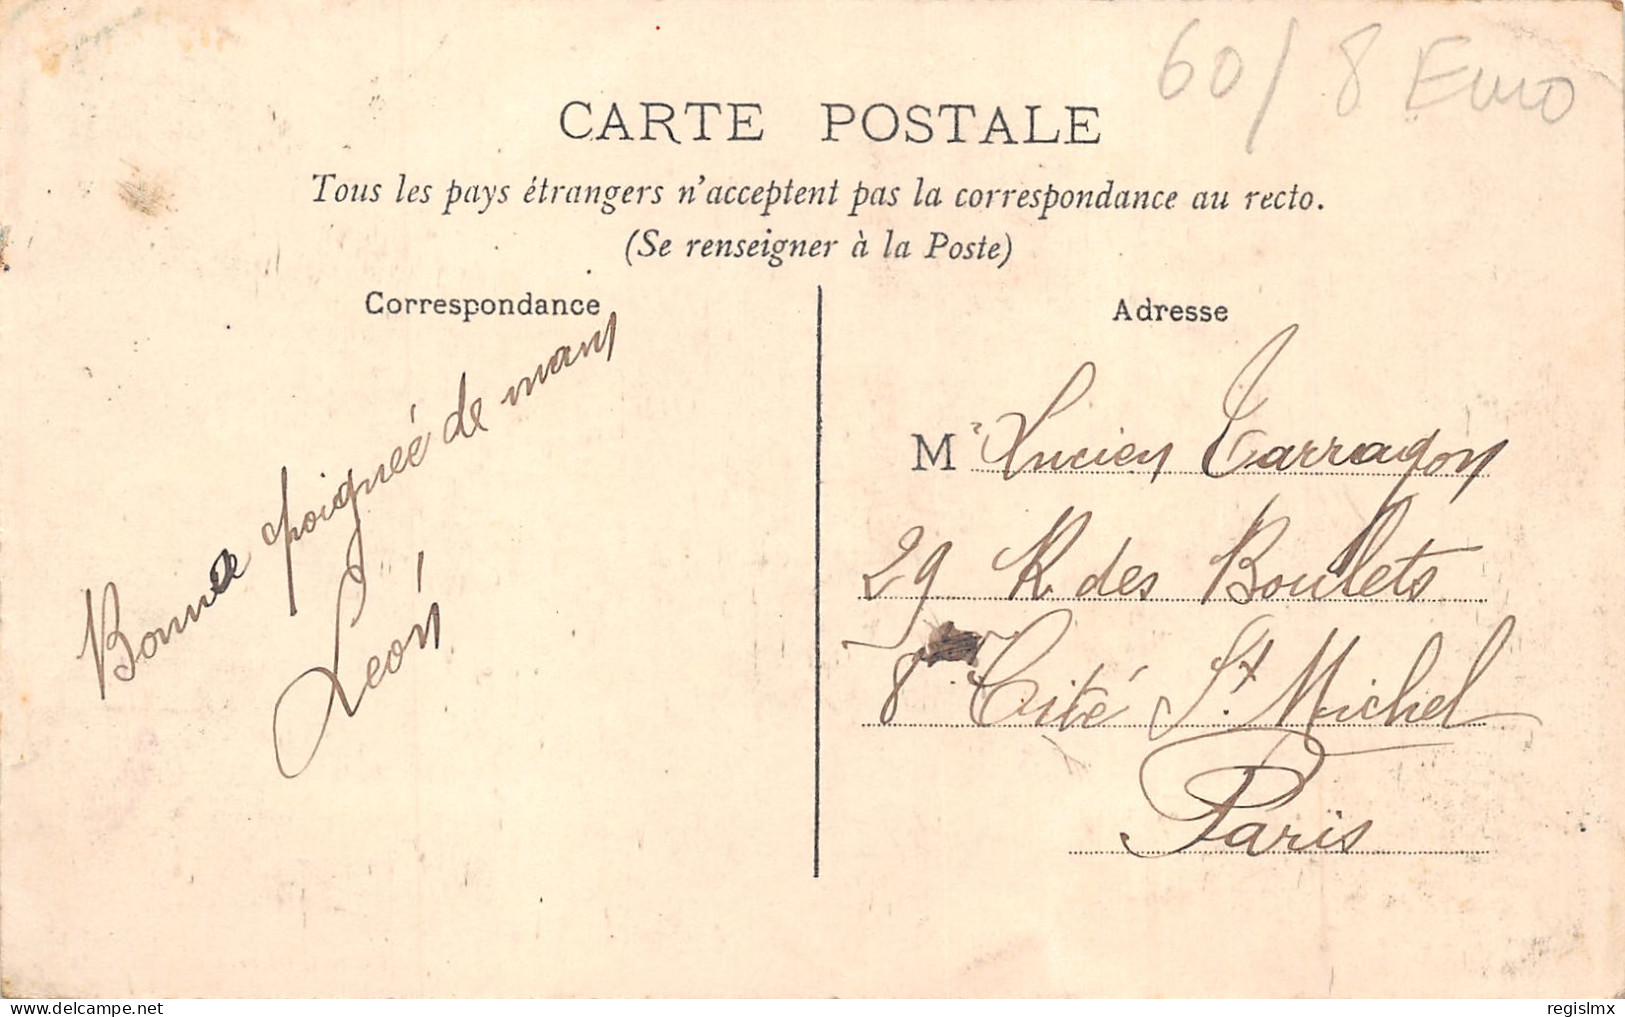 60/8 Euro
CARTE POSTALE
Tous les pays étrangers n'acceptent pas la correspondance au recto.
(Se renseigner à la Poste)
Correspondance
Bonne poignée de mans
Leon
Adresse
Mr Lucien Tarragon
29 R. des Boulets
8 Cité St. Michel
Paris
delcampe.net
regislmx